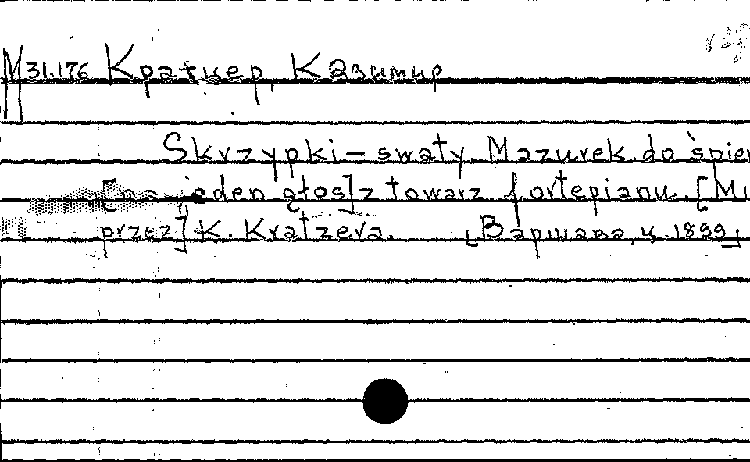 M 31.176 Кратцер, Казимир
Skrzypki – swaty. Mazurek do śpie
[na jeden głos] z towarz. fortepianu. [Mu
przez] K. Kratzera. [Варшава, ц. 1899]